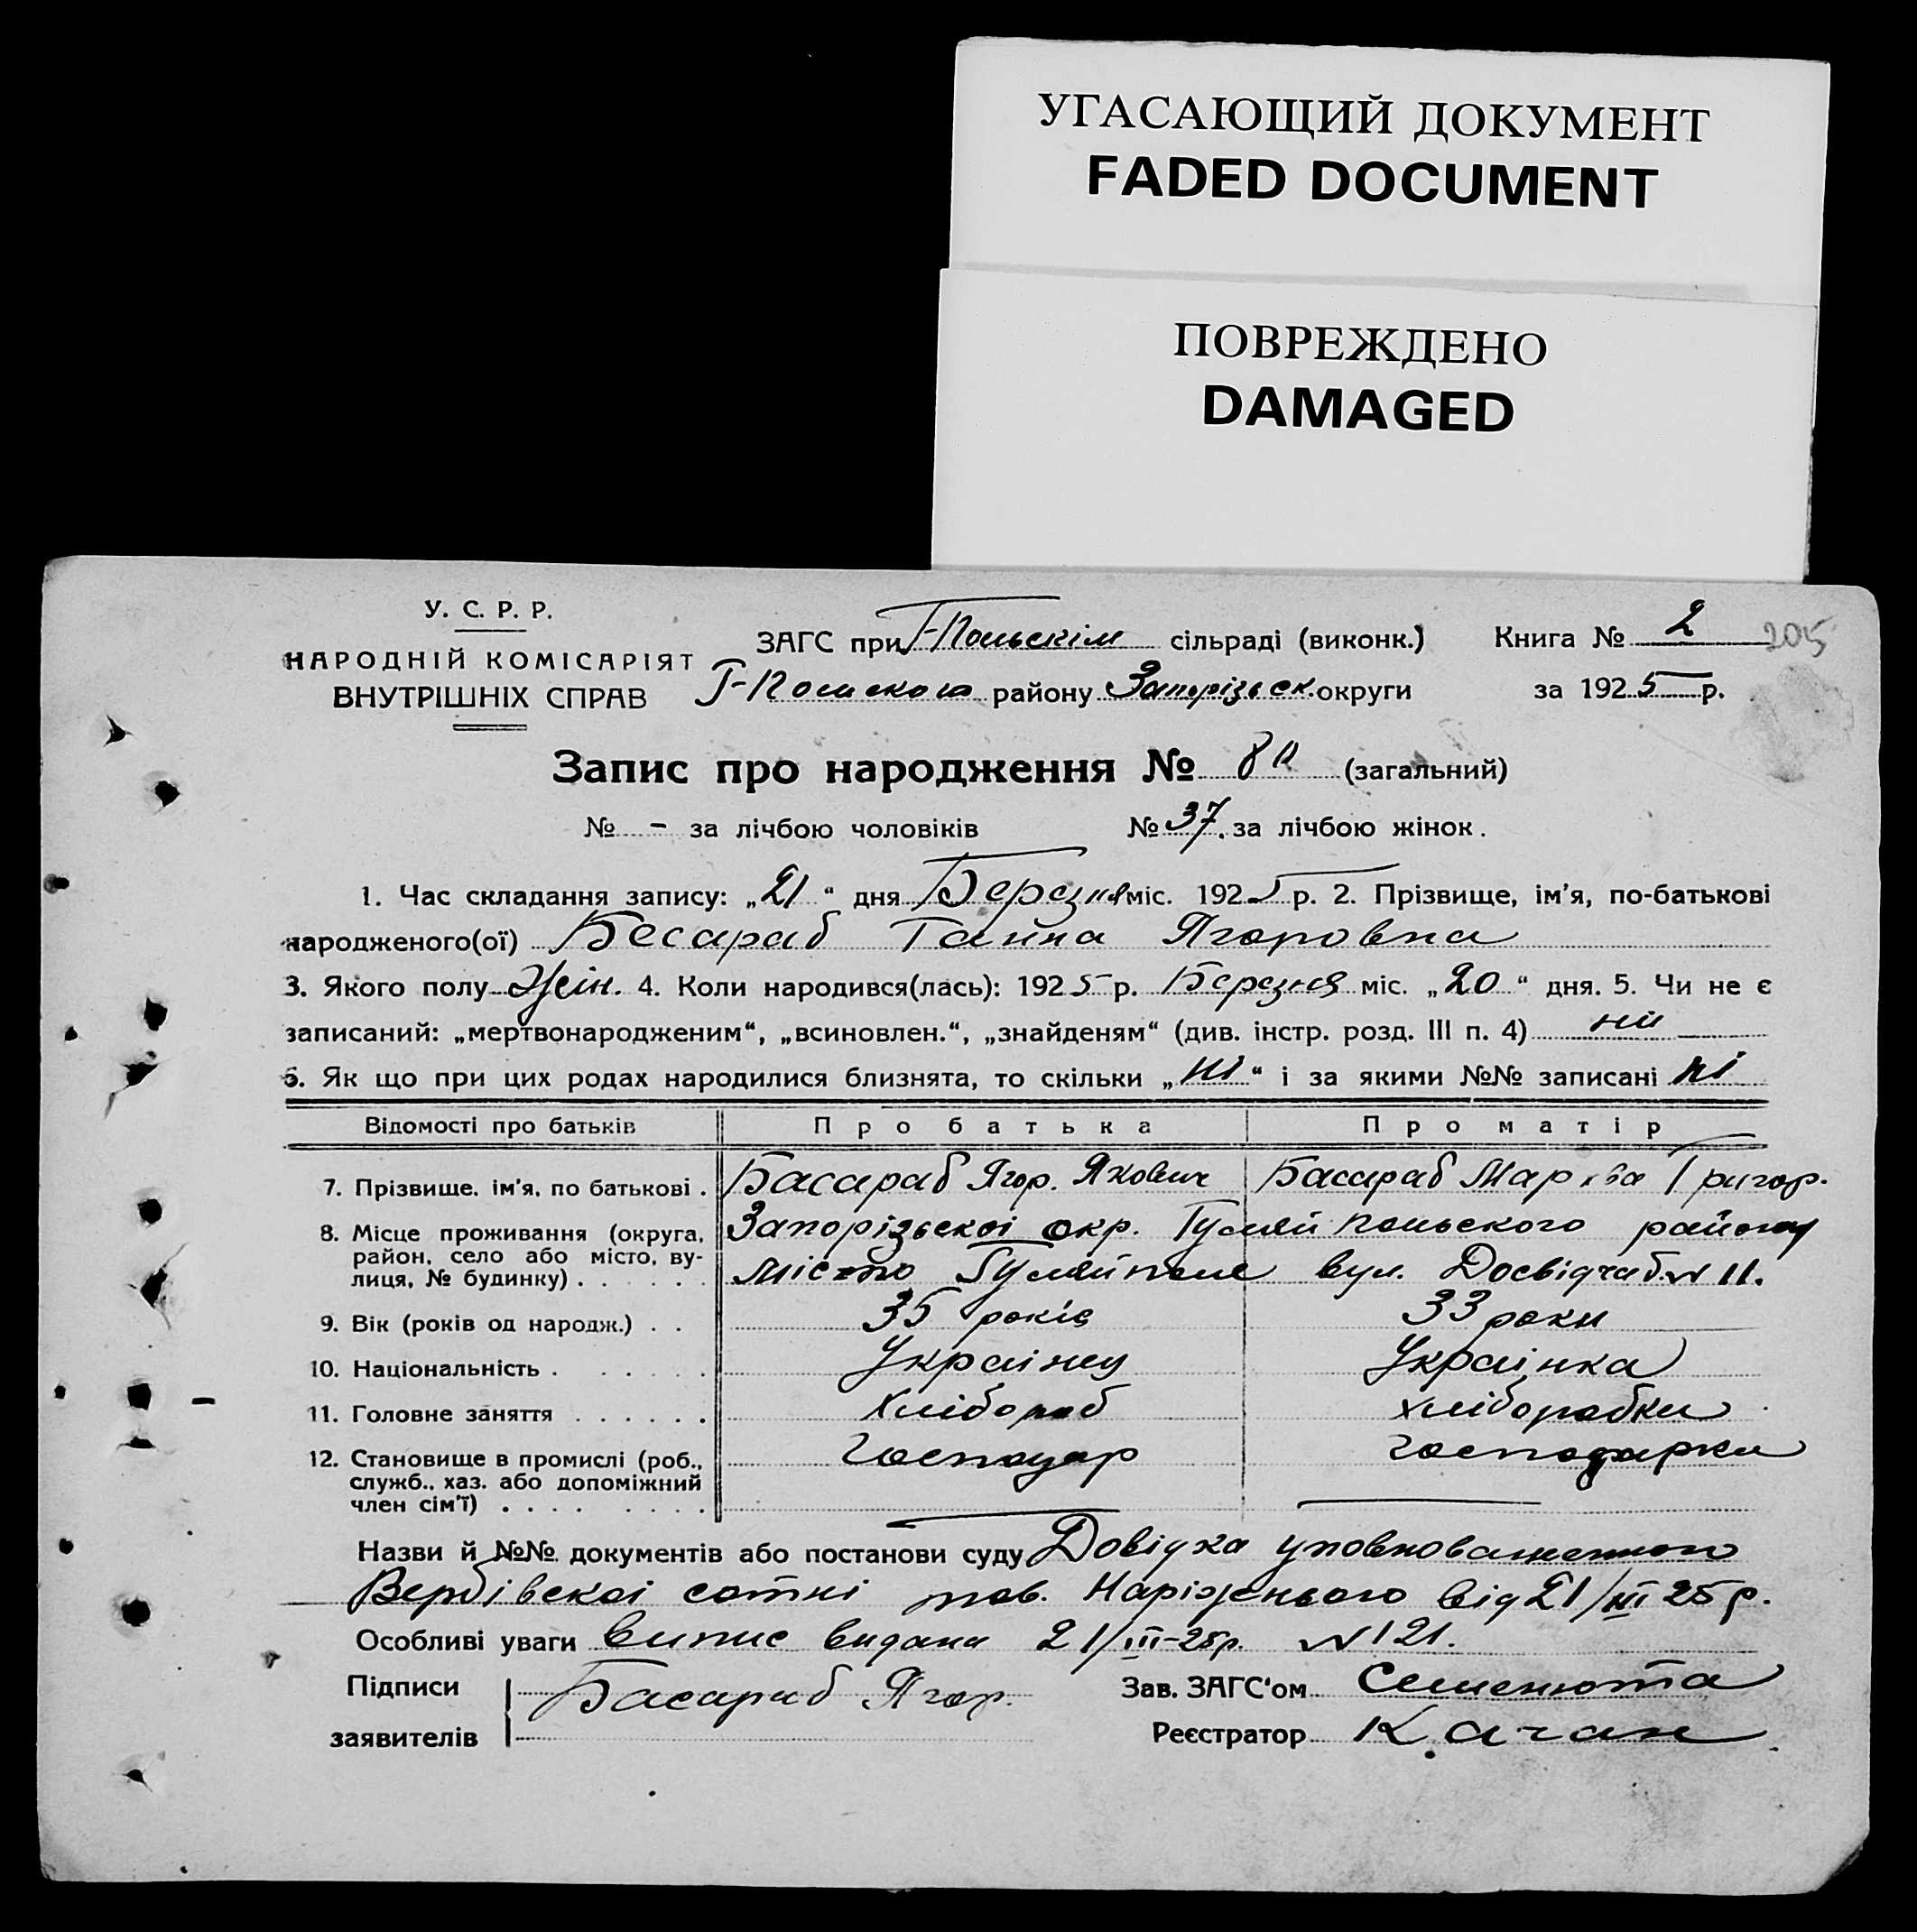 УГАСАЮЩИЙ ДОКУМЕНТ
FADED DOCUMENT
ПОВРЕЖДЕНО
DAMAGED
У. С. Р. Р.
НАРОДНІЙ КОМІСАРІЯТ
ВНУТРІШНІХ СПРАВ
ЗАГС при Г-Польскім сільраді (виконк.) Книга № 2 205
Г-Польского району Запорізьск. округи за 1925 р.
Запис про народження № (загальний)
№ - за лічбою чоловіків № 37. за лічбою жінок.
1. Час складання запису: „21“ дня Березня міс. 1925 р. 2. Прізвище, ім'я, по-батькові
народженого(ої) Бесараб Ганна Ягоровна
3. Якого полу Жін. 4. Коли народився(лась): 1925 р. Березня міс. „20“ дня. 5. Чи не є
записаний: „мертвонародженим“, „всиновлен.“, „знайденям“ (див. інстр. розд. III п. 4) ні
6. Як що при цих родах народилися близнята, то скільки „ні“ і за якими №№ записані ні
Відомості про батьків Про батька Про матір
7. Прізвище, ім'я, по батькові . Басараб Ягор. Якович Басараб Григор.
8. Місце проживання (округа, район, село або місто, вулиця, № будинку) . . . . . Запорізької окр. Гуляйпольского району
місто Гуляйполе вул. № 11.
9. Вік (років од народж.) . . 35 років 33 роки
10. Національність . . . . . . Украінец Украінка
11. Головне заняття . . . . . . Хлібороб хліборобка
12. Становище в промислі (роб., служб., хаз. або допоміжний член сім'ї) . . . . . . . . Господар господарка
Назви й №№ документів або постанови суду Довідка уповноваженного
Вербівскоі сотні тов. Наріжнього від 21/III 25 р.
Особливі уваги Випис видана 21/III-25р. № 121.
Підписи
заявителів
Басараб Ягор.
Зав. ЗАГС'ом Семенюта
Реєстратор Качан